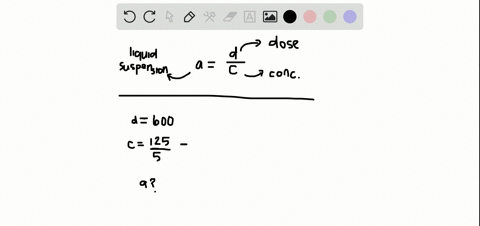 liquid suspension a = d/c
dose
conc.
d = 600
c = 125/5 -
a?